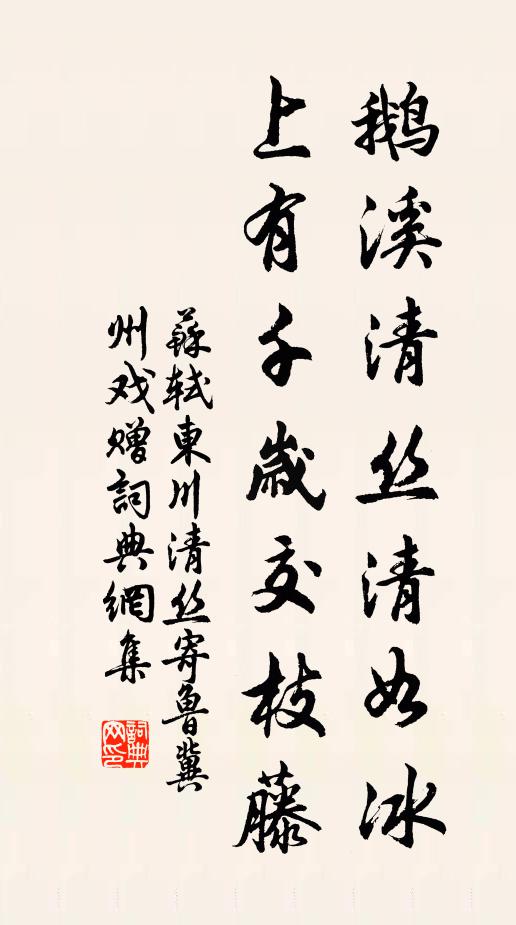 鹅溪清丝清如冰
上有千歲交枝藤
蘇軾東川清丝寄魯冀
州戏贈詞典網集
詞典
网印